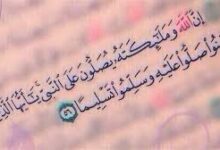 إِنَّ اللَّهَ وَمَلَٰٓئِكَتَهُۥ يُصَلُّونَ عَلَى النَّبِيِّ يَٰٓأَيُّهَا الَّذِ
نُوا۟ صَلُّوا۟ عَلَيْهِ وَسَلِّمُوا۟ تَسْلِيمًا ٥٦